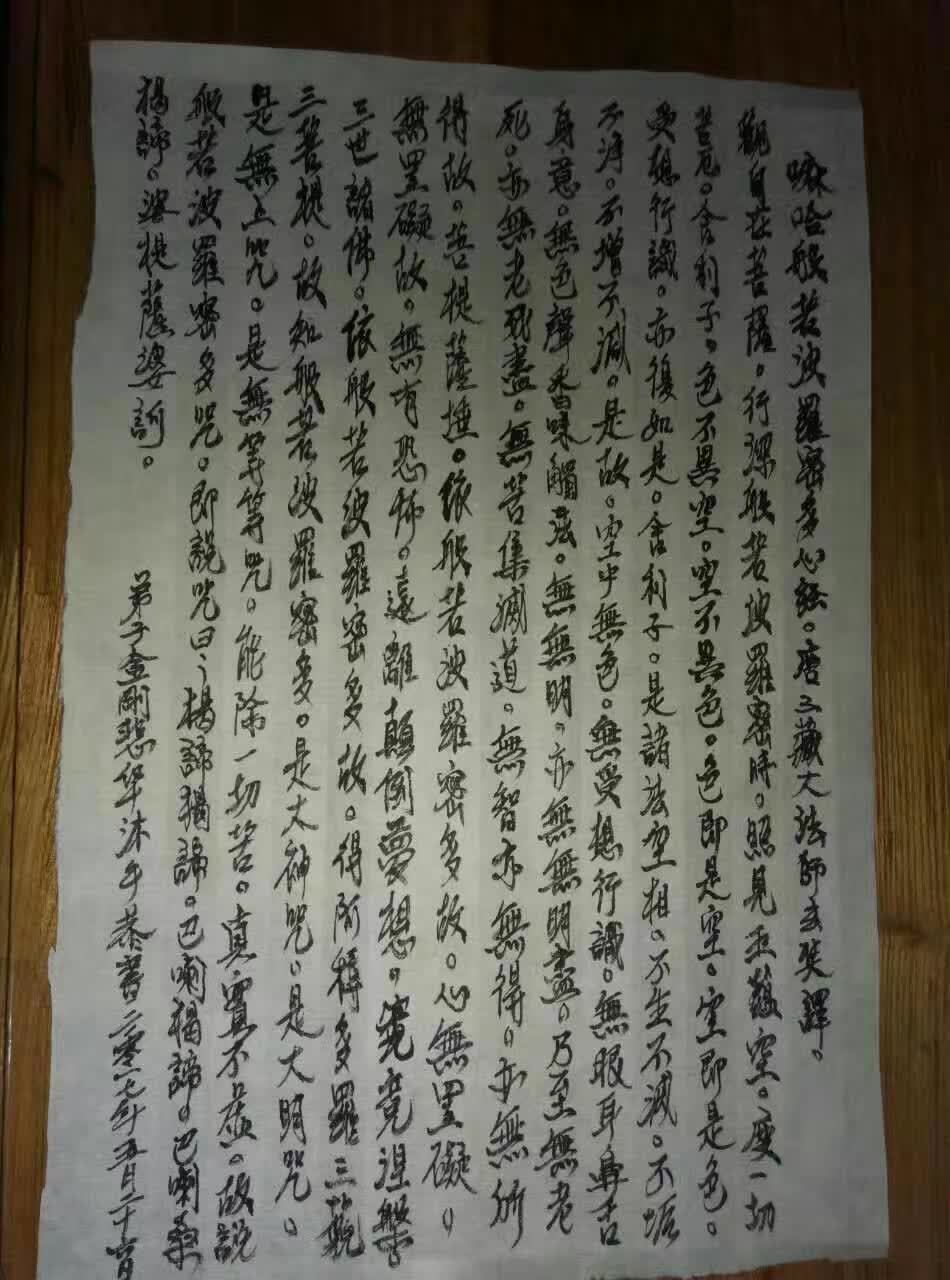 嘛哈般若波羅密多心経。唐三藏大法師玄奘譯。
觀自在菩薩。行深般若波羅密時。照見五蘊空。度一切
苦厄。舍利子。色不異空。空不異色。色即是空。空即是色。
受想行識。亦復如是。舍利子。是諸法空相。不生不滅。不垢
不淨。不增不減。是故。空中無色。無受想行識。無眼耳鼻舌
身意。無色聲香味觸法。無無明。亦無無明盡。乃至無老
死。亦無老死盡。無苦集滅道。無智亦無得。亦無所
得故。菩提薩埵。依般若波羅密多故。心無罣礙。
無罣礙故。無有恐怖。遠離顛倒夢想。究竟涅槃。
三世諸佛。依般若波羅密多故。得阿耨多羅三藐
三菩提。故知般若波羅密多。是大神咒。是大明咒。
是無上咒。是無等等咒。能除一切苦。真實不虛。故說
般若波羅密多咒。即說咒曰、揭諦揭諦。巴喇揭諦。巴喇桑
揭諦。婆提薩婆訶。
弟子金剛悲华沐手恭書二零一七年五月二十